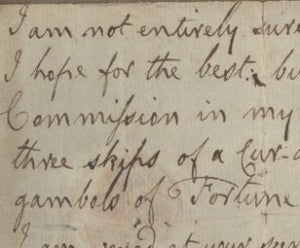 I am not entirely sure
I hope for the best: bu
Commission in my
three skips of a Cur-d
gambols of Fortune
I am
at your